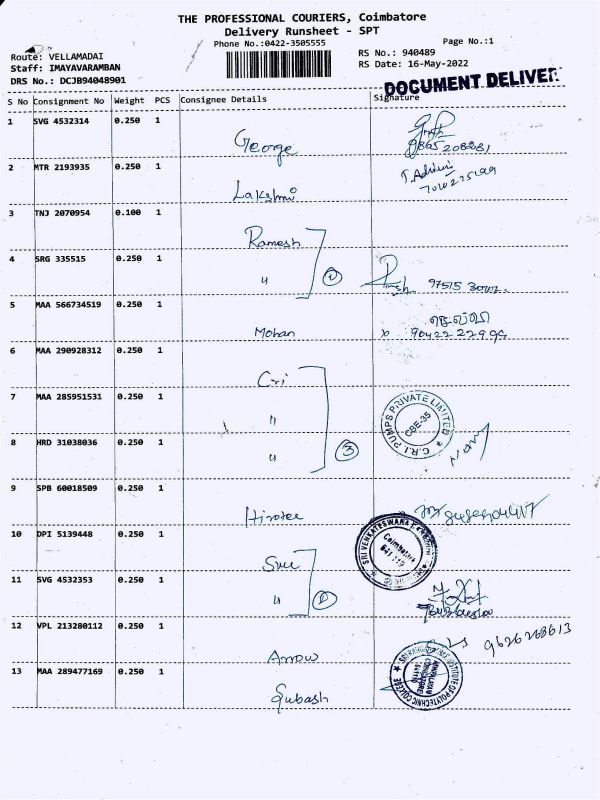 THE PROFESSIONAL COURIERS, Coimbatore
Delivery Runsheet - SPT
Phone No.:0422-3505555
Page No.:1
Route: VELLAMADAI
Staff: IMAYAVARAMBAN
DRS No.: DCJB94048901
RS No.: 940489
RS Date: 16-May-2022
DOCUMENT DELIVER
S No Consignment No Weight PCS Consignee Details Signature
1 SVG 4532314 0.250 1
George
2 MTR 2193935 0.250 1
Lakshmi
3 TNJ 2070954 0.100 1
Ramesh
4 SRG 335515 0.250 1
" 2
97515
5 MAA 566734519 0.250 1
Mohan
6 MAA 290928312 0.250 1
Cri
7 MAA 285951531 0.250 1
"
C.R.I. PUMPS PRIVATE LIMITED
CBE-35
8 HRD 31038036 0.250 1
" 3
9 SPB 60018509 0.250 1
10 DPI 5139448 0.250 1
SRI VENKATESWARA
Coimbatore
11 SVG 4532353 0.250 1
" 2
12 VPL 213280112 0.250 1
Arrow
9626268613
13 MAA 289477169 0.250 1
Subash
INSTITUTE OF POLYTECHNIC COLLEGE
COIMBATORE